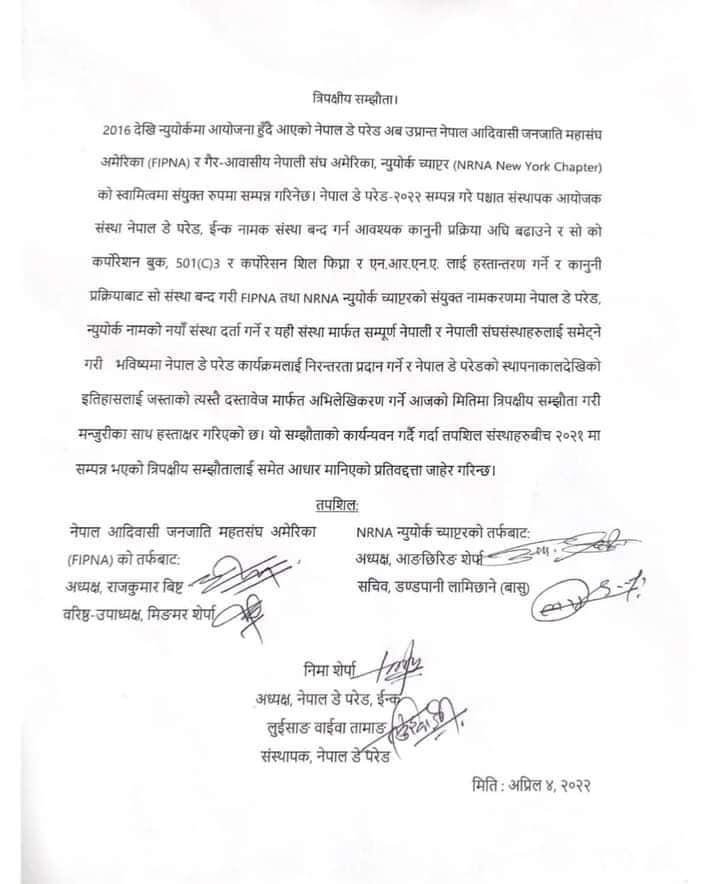 त्रिपक्षीय सम्झौता।
2016 देखि न्युयोर्कमा आयोजना हुँदै आएको नेपाल डे परेड अब उप्रान्त नेपाल आदिवासी जनजाति महासंघ
अमेरिका (FIPNA) र गैर-आवासीय नेपाली संघ अमेरिका, न्युयोर्क च्याप्टर (NRNA New York Chapter)
को स्वामित्वमा संयुक्त रुपमा सम्पन्न गरिनेछ। नेपाल डे परेड-२०२२ सम्पन्न गरे पश्चात संस्थापक आयोजक
संस्था नेपाल डे परेड, ईन्क नामक संस्था बन्द गर्न आवश्यक कानुनी प्रक्रिया अघि बढाउने र सो को
कर्पोरेशन बुक, 501(C)3 र कर्पोरेसन शिल फिप्ना र एन.आर.एन.ए. लाई हस्तान्तरण गर्ने र कानुनी
प्रक्रियाबाट सो संस्था बन्द गरी FIPNA तथा NRNA न्युयोर्क च्याप्टरको संयुक्त नामकरणमा नेपाल डे परेड,
न्युयोर्क नामको नयाँ संस्था दर्ता गर्ने र यही संस्था मार्फत सम्पूर्ण नेपाली र नेपाली संघसंस्थाहरुलाई समेट्ने
गरी भविष्यमा नेपाल डे परेड कार्यक्रमलाई निरन्तरता प्रदान गर्ने र नेपाल डे परेडको स्थापनाकालदेखिको
इतिहासलाई जस्ताको त्यस्तै दस्तावेज मार्फत अभिलेखिकरण गर्ने आजको मितिमा त्रिपक्षीय सम्झौता गरी
मन्जुरीका साथ हस्ताक्षर गरिएको छ। यो सम्झौताको कार्यन्वयन गर्दै गर्दा तपशिल संस्थाहरुबीच २०२१ मा
सम्पन्न भएको त्रिपक्षीय सम्झौतालाई समेत आधार मानिएको प्रतिवद्दत्ता जाहेर गरिन्छ।
तपशिल:
नेपाल आदिवासी जनजाति महतसंघ अमेरिका
(FIPNA) को तर्फबाट:
अध्यक्ष, राजकुमार बिष्ट
वरिष्ठ-उपाध्यक्ष, मिङमर शेर्पा
NRNA न्युयोर्क च्याप्टरको तर्फबाट:
अध्यक्ष, आङछिरिङ शेर्पा
सचिव, डण्डपानी लामिछाने (बासु)
निमा शेर्पा
अध्यक्ष, नेपाल डे परेड, ईन्क
लुईसाङ वाईवा तामाङ
संस्थापक, नेपाल डे परेड
मिति : अप्रिल ४, २०२२